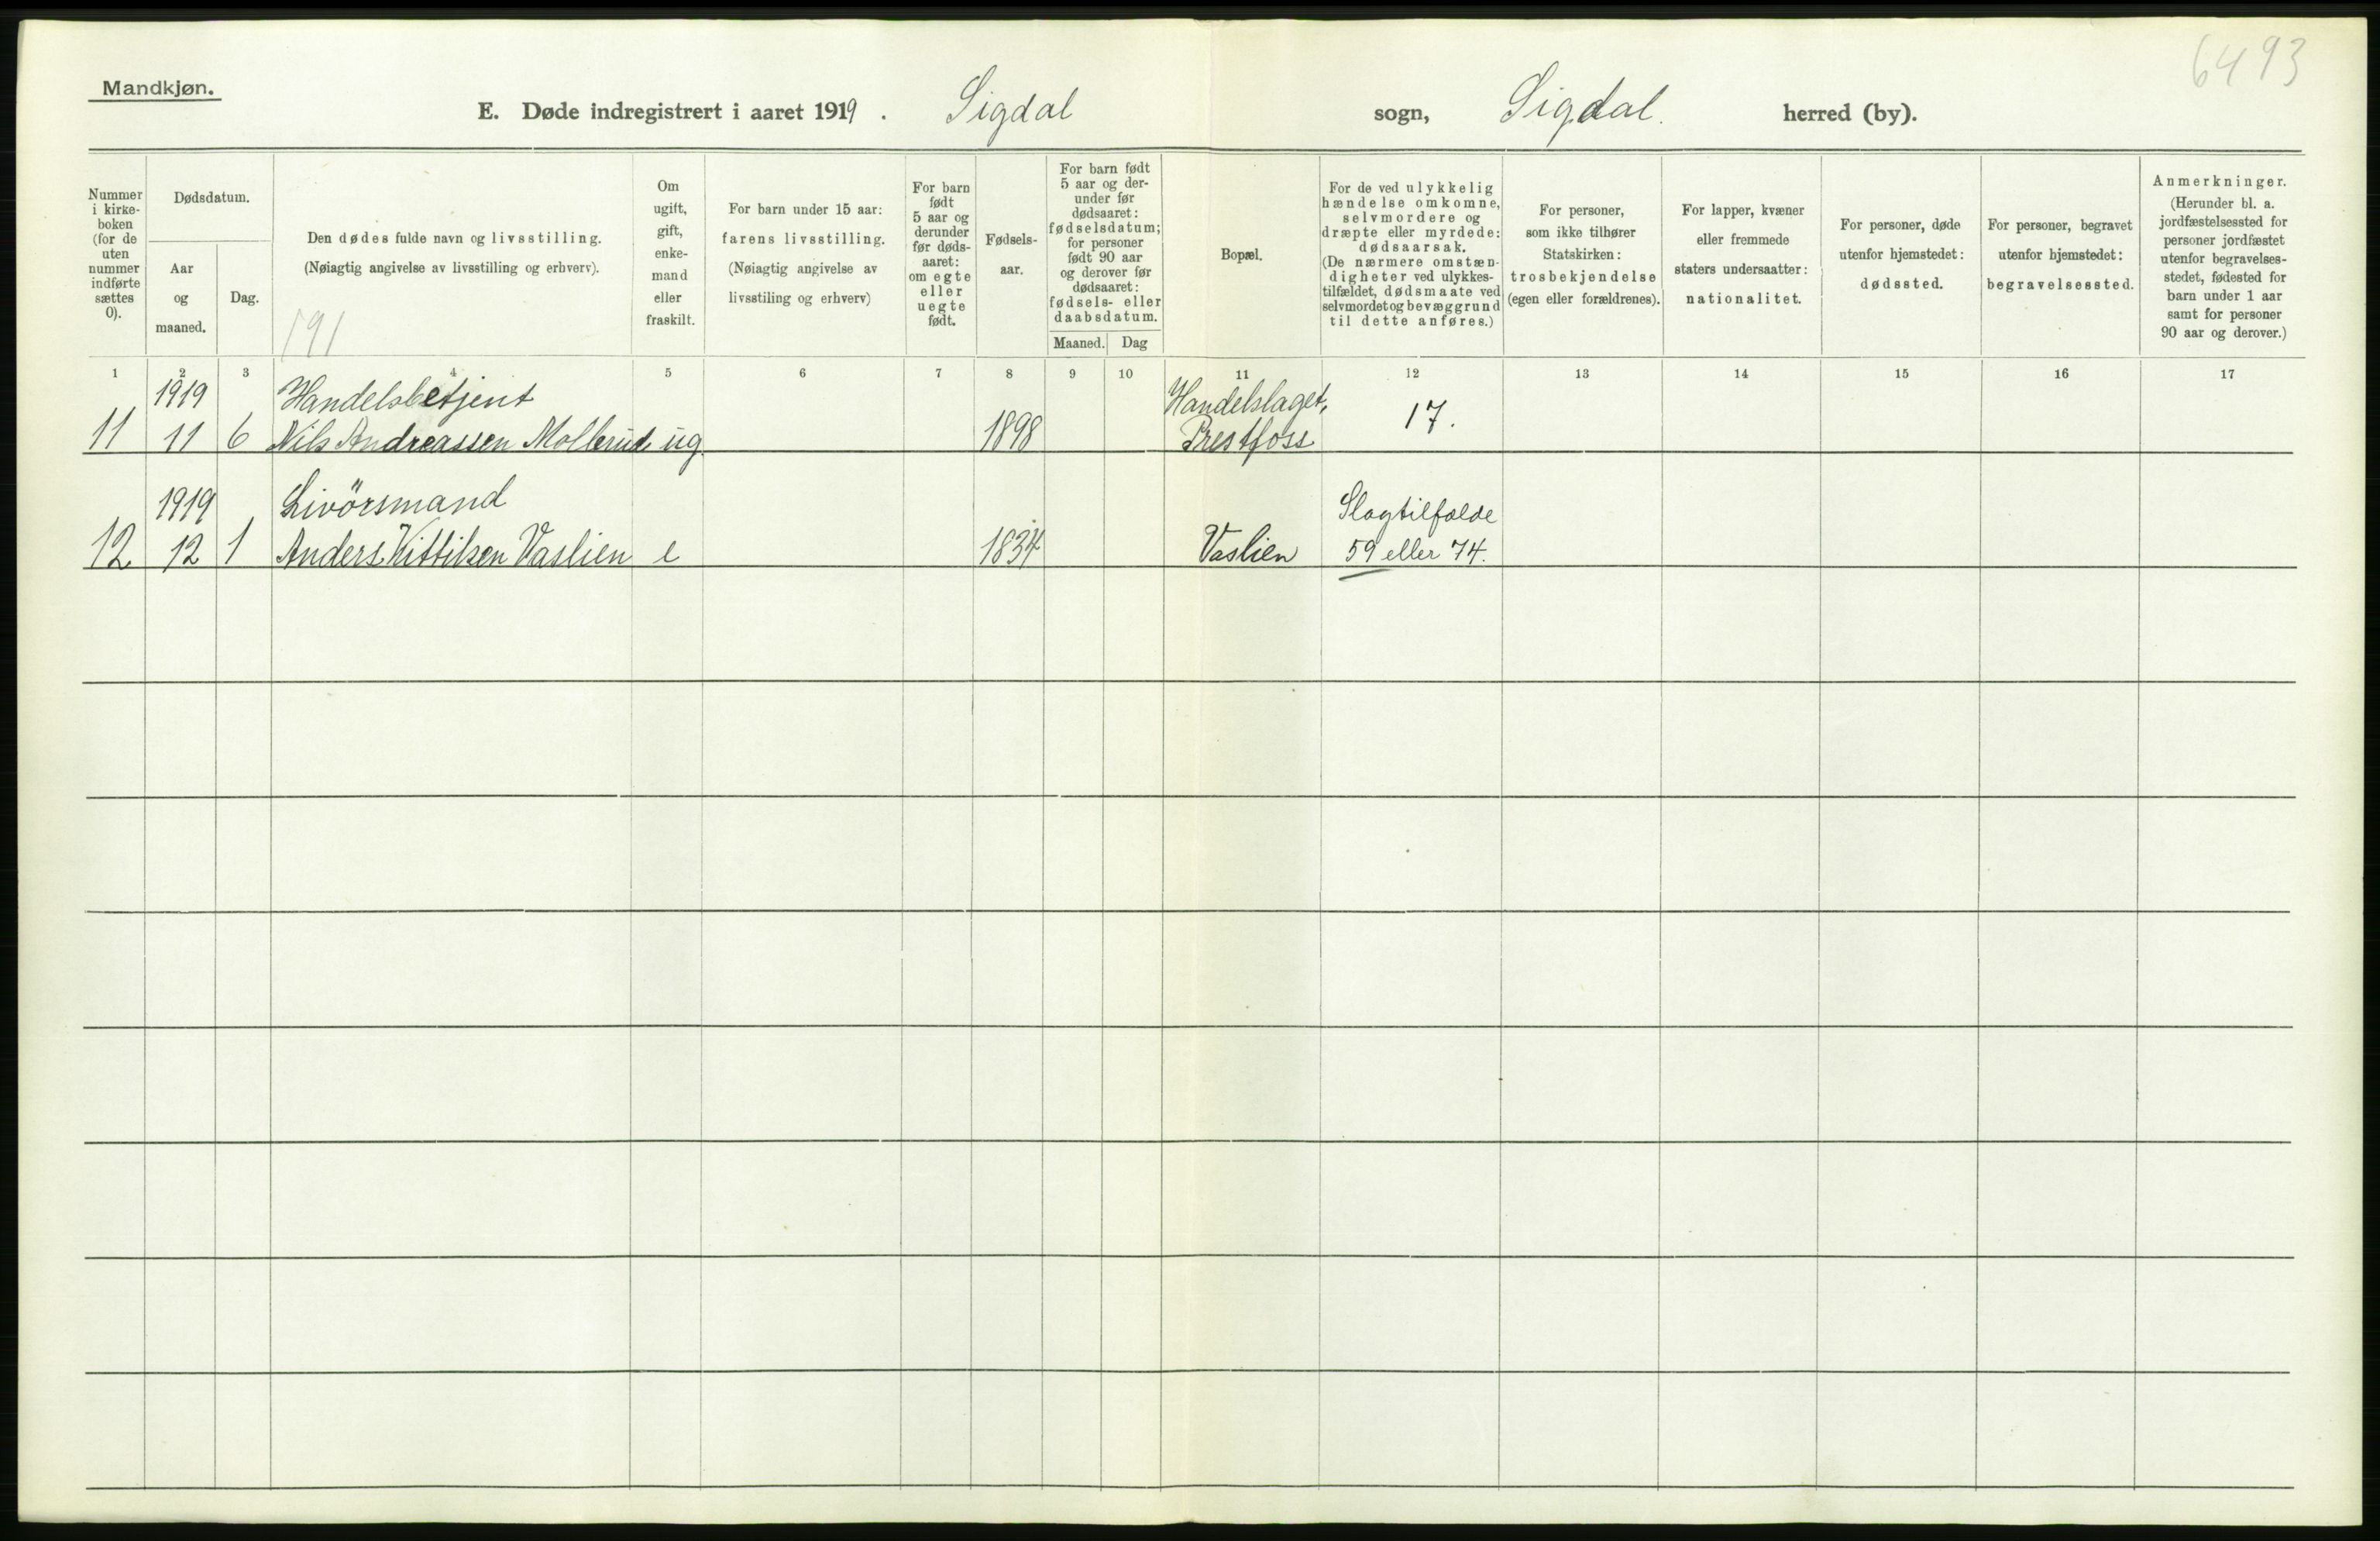 6493
Mandkjøn.
E. Døde indregistrert i aaret 1919. Sigdal sogn, Sigdal. herred (by).
Nummer i kirke-boken (for de uten nummer indførte sættes 0).
Dødsdatum.
Aar og maaned.
Dag.
Den dødes fulde navn og livsstilling.
(Nøiagtig angivelse av livsstilling og erhverv).
191
Om ugift, gift, enke-mand eller fraskilt.
For barn under 15 aar:
farens livsstilling.
(Nøiagtig angivelse av
livsstiling og erhverv)
For barn født 5 aar og derunder før døds-aaret: om egte eller uegte født.
Fødsels-aar.
For barn født 5 aar og der-under før dødsaaret: fødselsdatum; for personer født 90 aar og derover før dødsaaret: fødsels- eller daabsdatum.
Maaned. Dag
Bopæl.
For de ved ulykkelig hændelse omkomne, selvmordere og dræpte eller myrdede: dødsaarsak.
(De nærmere omstæn-digheter ved ulykkes-tilfældet, dødsmaate ved selvmordet og bevæggrund til dette anføres.)
For personer, som ikke tilhører Statskirken: trosbekjendelse (egen eller forældrenes).
For lapper, kvæner eller fremmede staters undersaatter: nationalitet.
For personer, døde utenfor hjemstedet: dødssted.
For personer, begravet utenfor hjemstedet: begravelsessted.
Anmerkninger.
(Herunder bl. a. jordfæstelsessted for personer jordfæstet utenfor begravelses-stedet, fødested for barn under 1 aar samt for personer 90 aar og derover.)
1 2 3 4 5 6 7 8 9 10 11 12 13 14 15 16 17
1919 Handelsbetjent Handelslaget,
11 11 6 Nils Andreassen Mollerud ug. 1898 Prestfoss 17.
1919 Livörsmand Slagtilfælde
12 12 1 Anders Kittilsen Vaslien e 1834 Vaslien 59 eller 74.